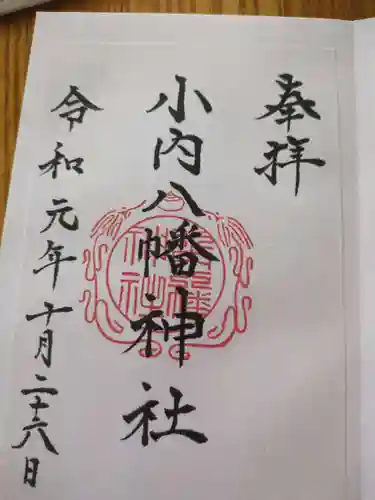 奉拝
小内八幡神社
令和元年十月二十八日